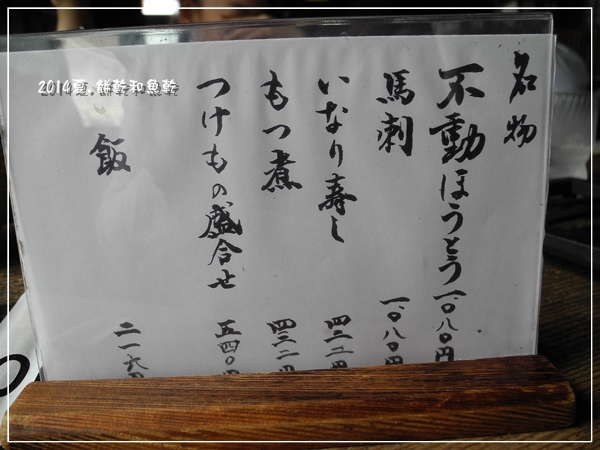 2014夏. 餅乾和魚乾
名物
不動ほうとう 一〇八〇円
馬刺 一〇八〇円
いなり寿し 四三二円
もつ煮 四三二円
つけもの盛合せ 五四〇円
飯 二一六円